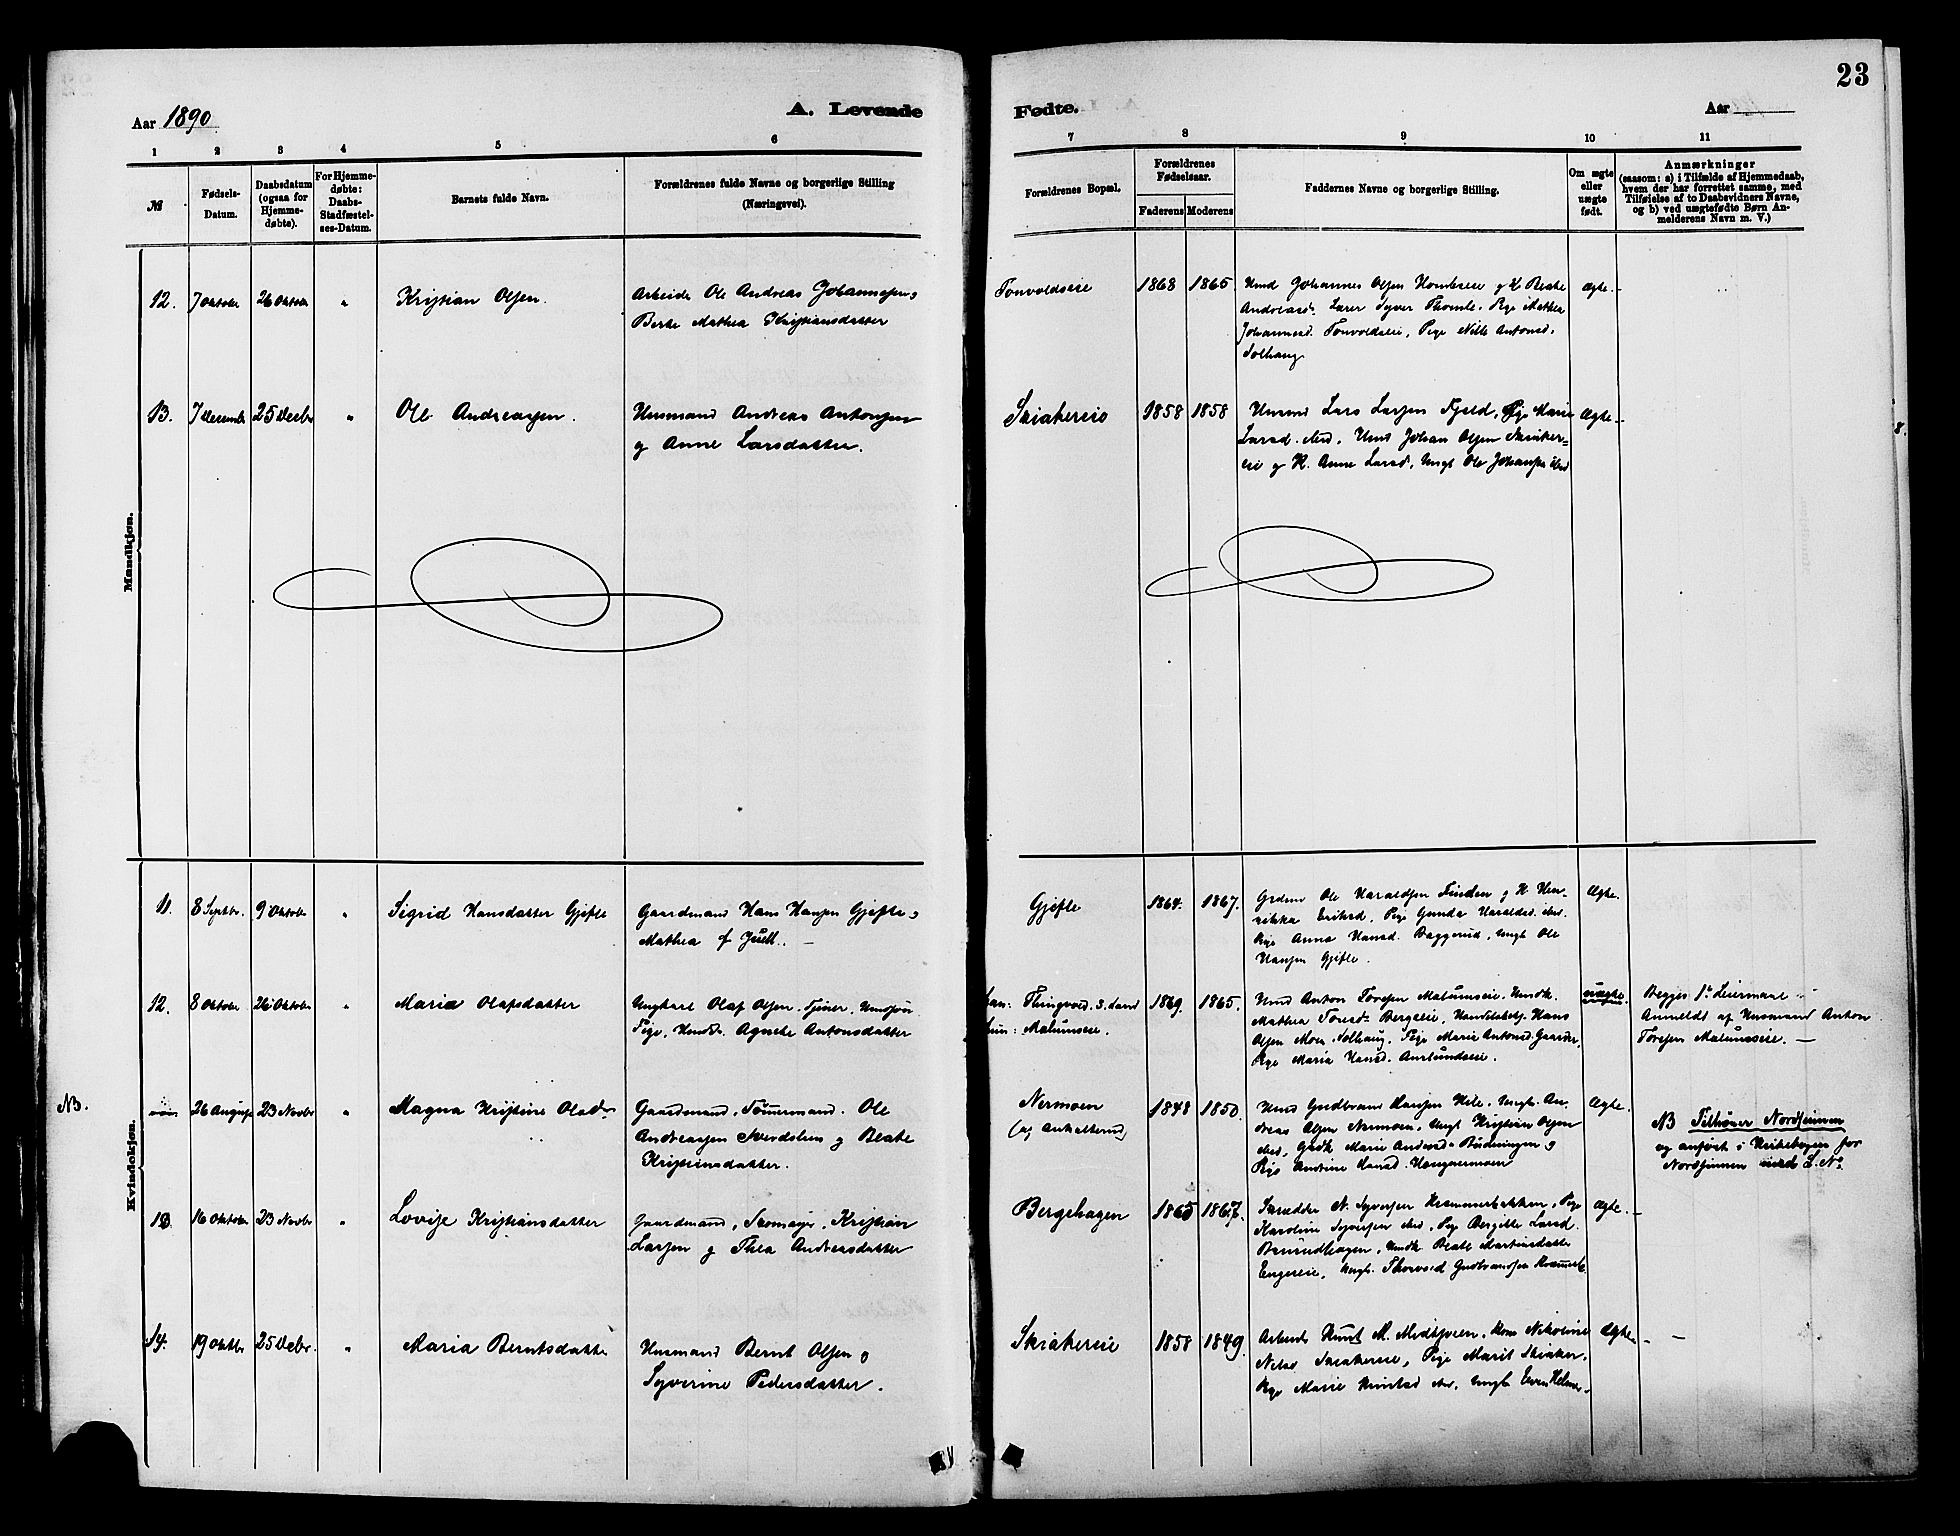 23
Aar 1890
A. Levende
Fødte.
Aar
1 2 3 4 5 6 7 8 9 10 11
№
Fødsels-
Datum.
Daabsdatum
(ogsaa for
Hjemme-
døbte).
For Hjemme-
døbte:
Daabs-
Stadfæstel-
ses-Datum.
Barnets fulde Navn.
Forældrenes fulde Navne og borgerlige Stilling
(Næringsvei).
Forældrenes Bopæl.
Forældrenes
Fødselsaar.
Faderens Moderens
Faddernes Navne og borgerlige Stilling.
Om ægte
eller
uægte
født.
Anmærkninger
(saasom: a) i Tilfælde af Hjemmedaab,
hvem der har forrettet samme, med
Tilføielse af to Daabsvidners Navne,
og b) ved uægtefødte Børn An-
melderens Navn m. V.)
Mandkjøn.
12. 7 Oktober 26 Oktober " Kristian Olsen.
Arbeider Ole Andreas Johannesen og
Berte Mathea Kristiansdatter
Tonvoldseie 1868 1865
Hmd Johannes Olsen Homleeie g K. Beate
Andreasd. Lærer Syver Thomle. Pige Mathea
Johannesd. Tonvoldseie, Pige Nille Antonsd.
Solhaug
Ægte.
13. 7 December 25 Decbr " Ole Andreassen.
Husmand Andreas Antonsen
g Anne Larsdatter.
Skiakereie 1858 1858
Husmd Lars Larsen Fjeld, Pige Marie
Larsd. ibid, Hmd Johan Olsen Skiaker-
eie g K. Anne Larsd, Ungk Ole Johansen ibid
Ægte.
Kvindekjøn.
11. 8 Septbr. 9 Oktober " Sigrid Hansdatter Gjefle
Gaardmand Hans Hansen Gjefle og
Mathea f. Juell. —
Gjefle 1864. 1867.
Grdmd Ole Haraldsen Finden g K. Hen-
rikka Eriksd, Pige Gunda Haraldsd. ibid.
Pige Anna Hansd. Baggerud, Ungk Ole
Hansen Gjefle.
Ægte.
12. 8 Oktober 26 Oktober " Maria Olafsdatter
Ungkarl Olaf Olsen. Tjener,
Pige, Agnethe Antonsdatter
han: Thingvold S. Land
hun: Malumseie.
1869. 1865.
Hmd Anton Toresen Malumseie, Husmdk.
Mathea Toresd. Bergseie, Handelsbetj. Hans
Olsen Moen Solhaug, Pige Marie Antonsd. Gaarder,
Pige Maria Hansd. Amlundseie.
uægte.
Begges 1ste Leiermaal
Anmeldt af Husmand Anton
Toresen Malumseie. —
NB.
26 August 23 Novbr " Magna Kristine Olsd.
Gaardmand, Tømmermand. Ole
Andreassen Sverdslien g Beate
Kristiansdatter.
Nermoen
(af Ankalterud)
1848 1850.
Hmd Gudbrand Hansen Hele, Ungk. An-
dreas Olsen Nermoen, Ungk Kristian Olsen
ibid, Grdk Marie Andersd. Rudningen og
Pige Andrine Hansd. Haugnermoen
Ægte.
NB Tilhører Nordsinnen
og anført i Kirkebogen for
Nordsinnen med L. No
13. 16 Oktober 23 Novbr " Lovise Kristiansdatter
Gaardmand, Skomager, Kristian
Larsen g Thea Andreasdatter
Bergehagen 1865 1867.
Skrædder N. Syversen Kræmmerbakken, Pige
Karoline Syversen ibid, Pige Bergitte Larsd.
Hmdk Beate Martinsdatter
Engereie, Ungk. Thorvald Gudbrandsen Kræmmerb.
Ægte.
14. 19 Oktbr 25 Decbr " Maria Berntsdatter
Husmand Bernt Olsen og
Syverine Pedersdatter.
Skiakereie 1858 1849.
Arbeid. Knut M. Midtsveen, Kone Nikoline
Nilsd Skiakereie, Pige Marit Skiaker,
Pige Marie Knutsd ibid, Ungk Even
Ægte. —